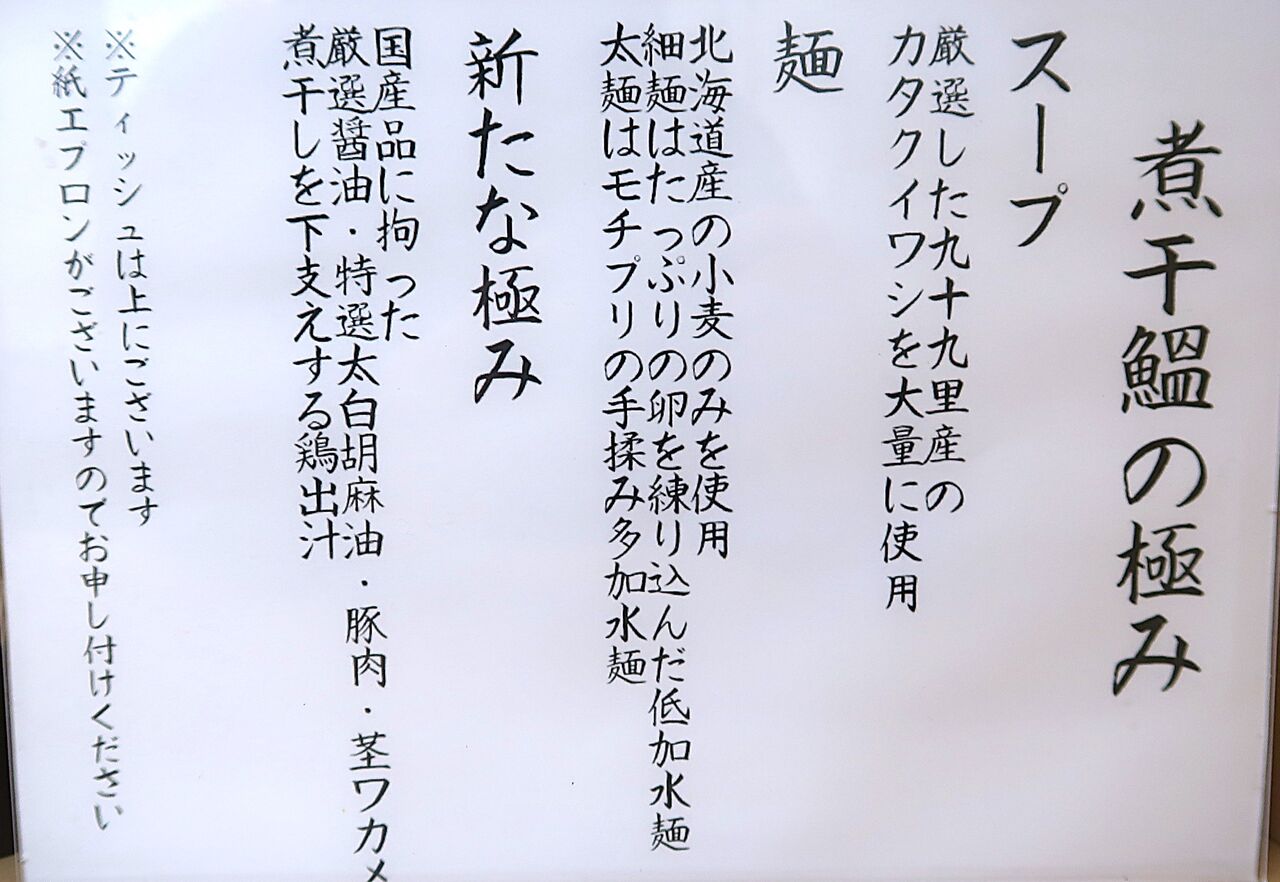 煮干鰮の極み
スープ
厳選した九十九里産の
カタクイワシを大量に使用
麺
北海道産の小麦のみを使用
細麺はたっぷりの卵を練り込んだ低加水麺
太麺はモチプリの手揉み多加水麺
新たな極み
国産品に拘った
厳選醤油・特選太白胡麻油・豚肉・茎ワカメ
煮干しを下支えする鶏出汁
※ティッシュは上にございます
※紙エプロンがございますのでお申し付けください